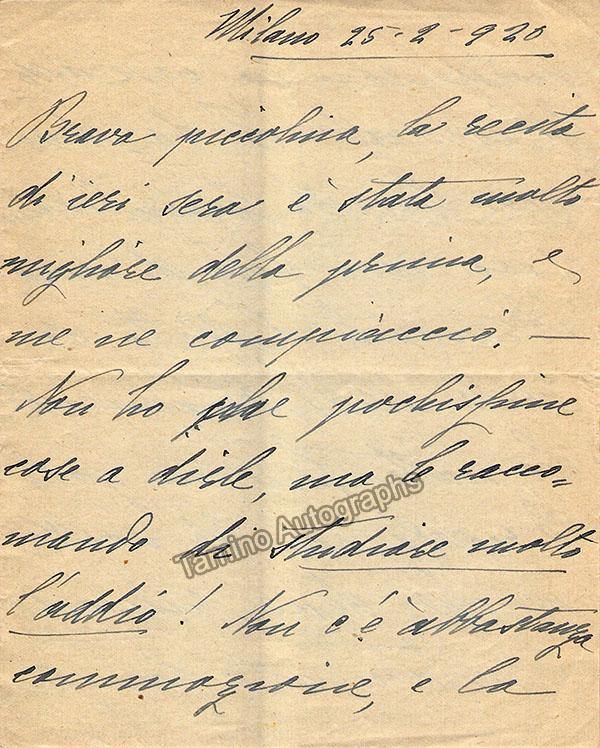 Milano 25-2-920
Brava piccolina, la recita
di ieri sera è stata molto
migliore della prima, e
me ne compiaccio. —
Non ho che pochissime
cose a dirle, ma le racco=
mando di studiare molto
l'addio! Non c'è abbastanza
commozione, e la
Tamino Autographs